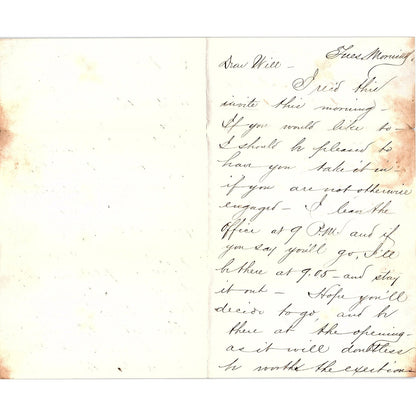 Tues. Morning.
Dear Will -
I rec'd this
invite this morning -
If you would like to -
I should be pleased to
have you take it in -
if you are not otherwise
engaged - I leave the
office at 9 P.M. and if
you say you'll go, I'll
be there at 9.05 - and stay
it out - Hope you'll
decide to go, and be
there at the opening -
as it will doubtless
be worth the exertion -